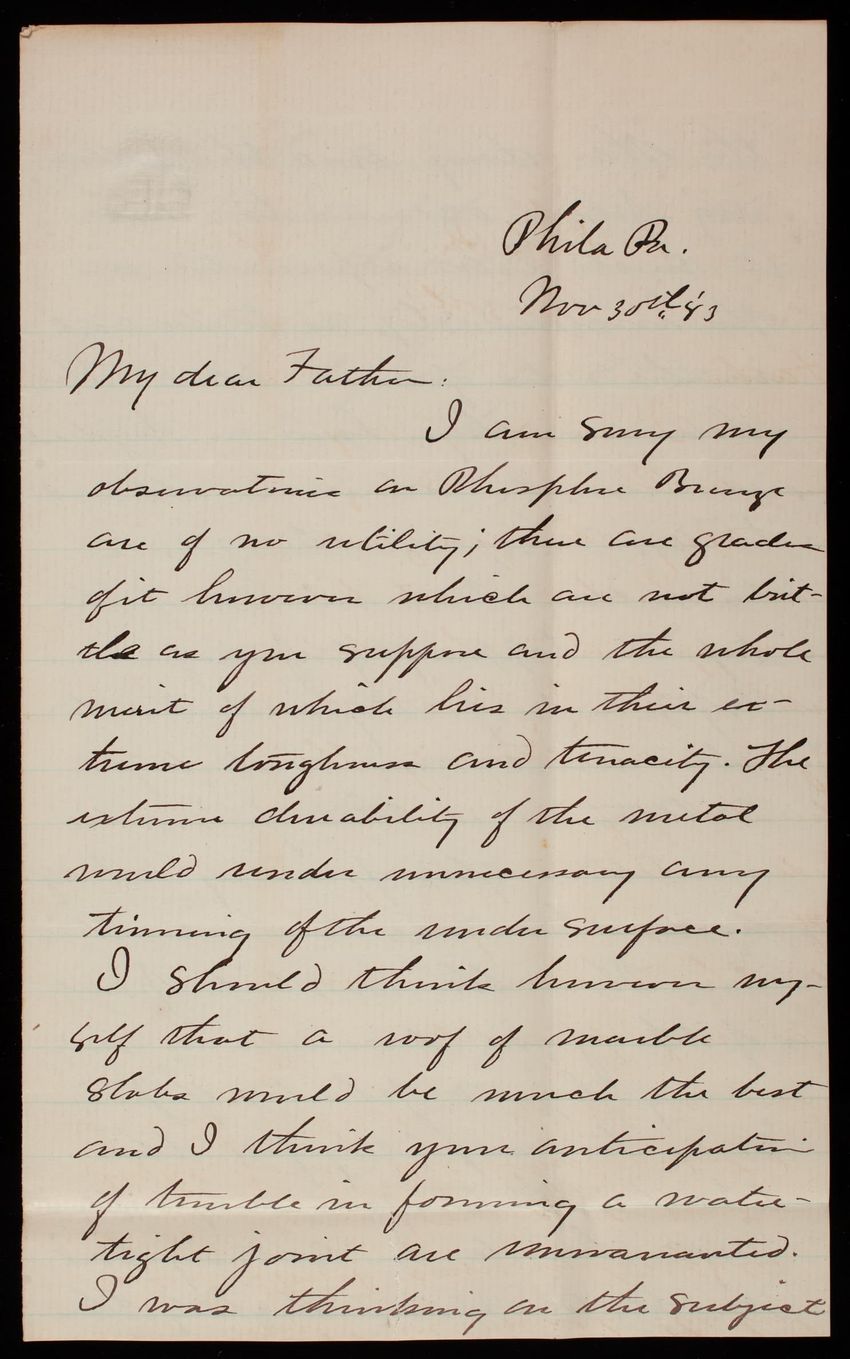 Phila Pa.
Nov 30th '83
My dear Father:
I am sorry my
observations on Phosphor Bronze
are of no utility; there are grades
of it however which are not brit-
tle as you suppose and the whole
merit of which lies in their ex-
treme toughness and tenacity. The
extreme durability of the metal
would render unnecessary any
tinning of the under surface.
I should think however my-
self that a roof of marble
slabs would be much the best
and I think your anticipation
of trouble in forming a water-
tight joint are unwarranted.
I was thinking on the subject